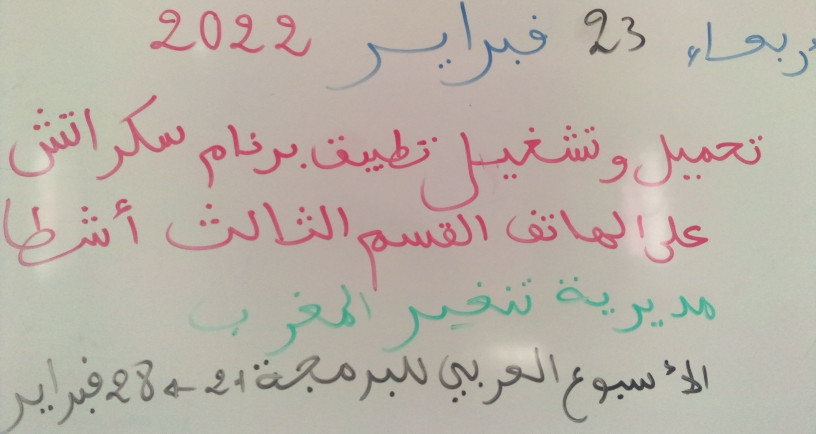 ربعاء 23 فبراير 2022
تحميل وتشغيل تطبيق برنام سكراتش
على الهاتف القسم الثالث أشطا
مديرية تنغير المغرب
الأسبوع العربي للبرمجة 21 → 28 فبراير